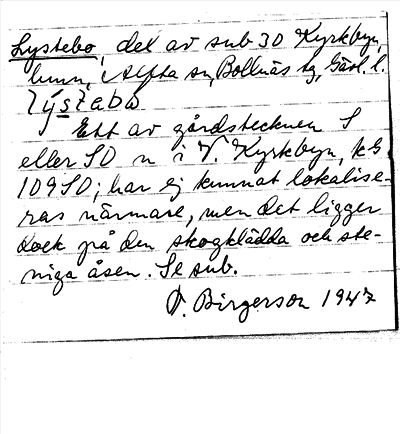 Lystebo, del av sub 30 Kyrkbyn,
hmn, Alfta sn, Bollnäs tg, Gävl. l.
lýstabω
Ett av gårdstecknen S
eller SO n i V. Kyrkbyn, kG
109 SO; har ej kunnat lokalise-
ras närmare, men det ligger
dock på den skogklädda och ste-
niga åsen. Se sub.
V. Birgerson 1947